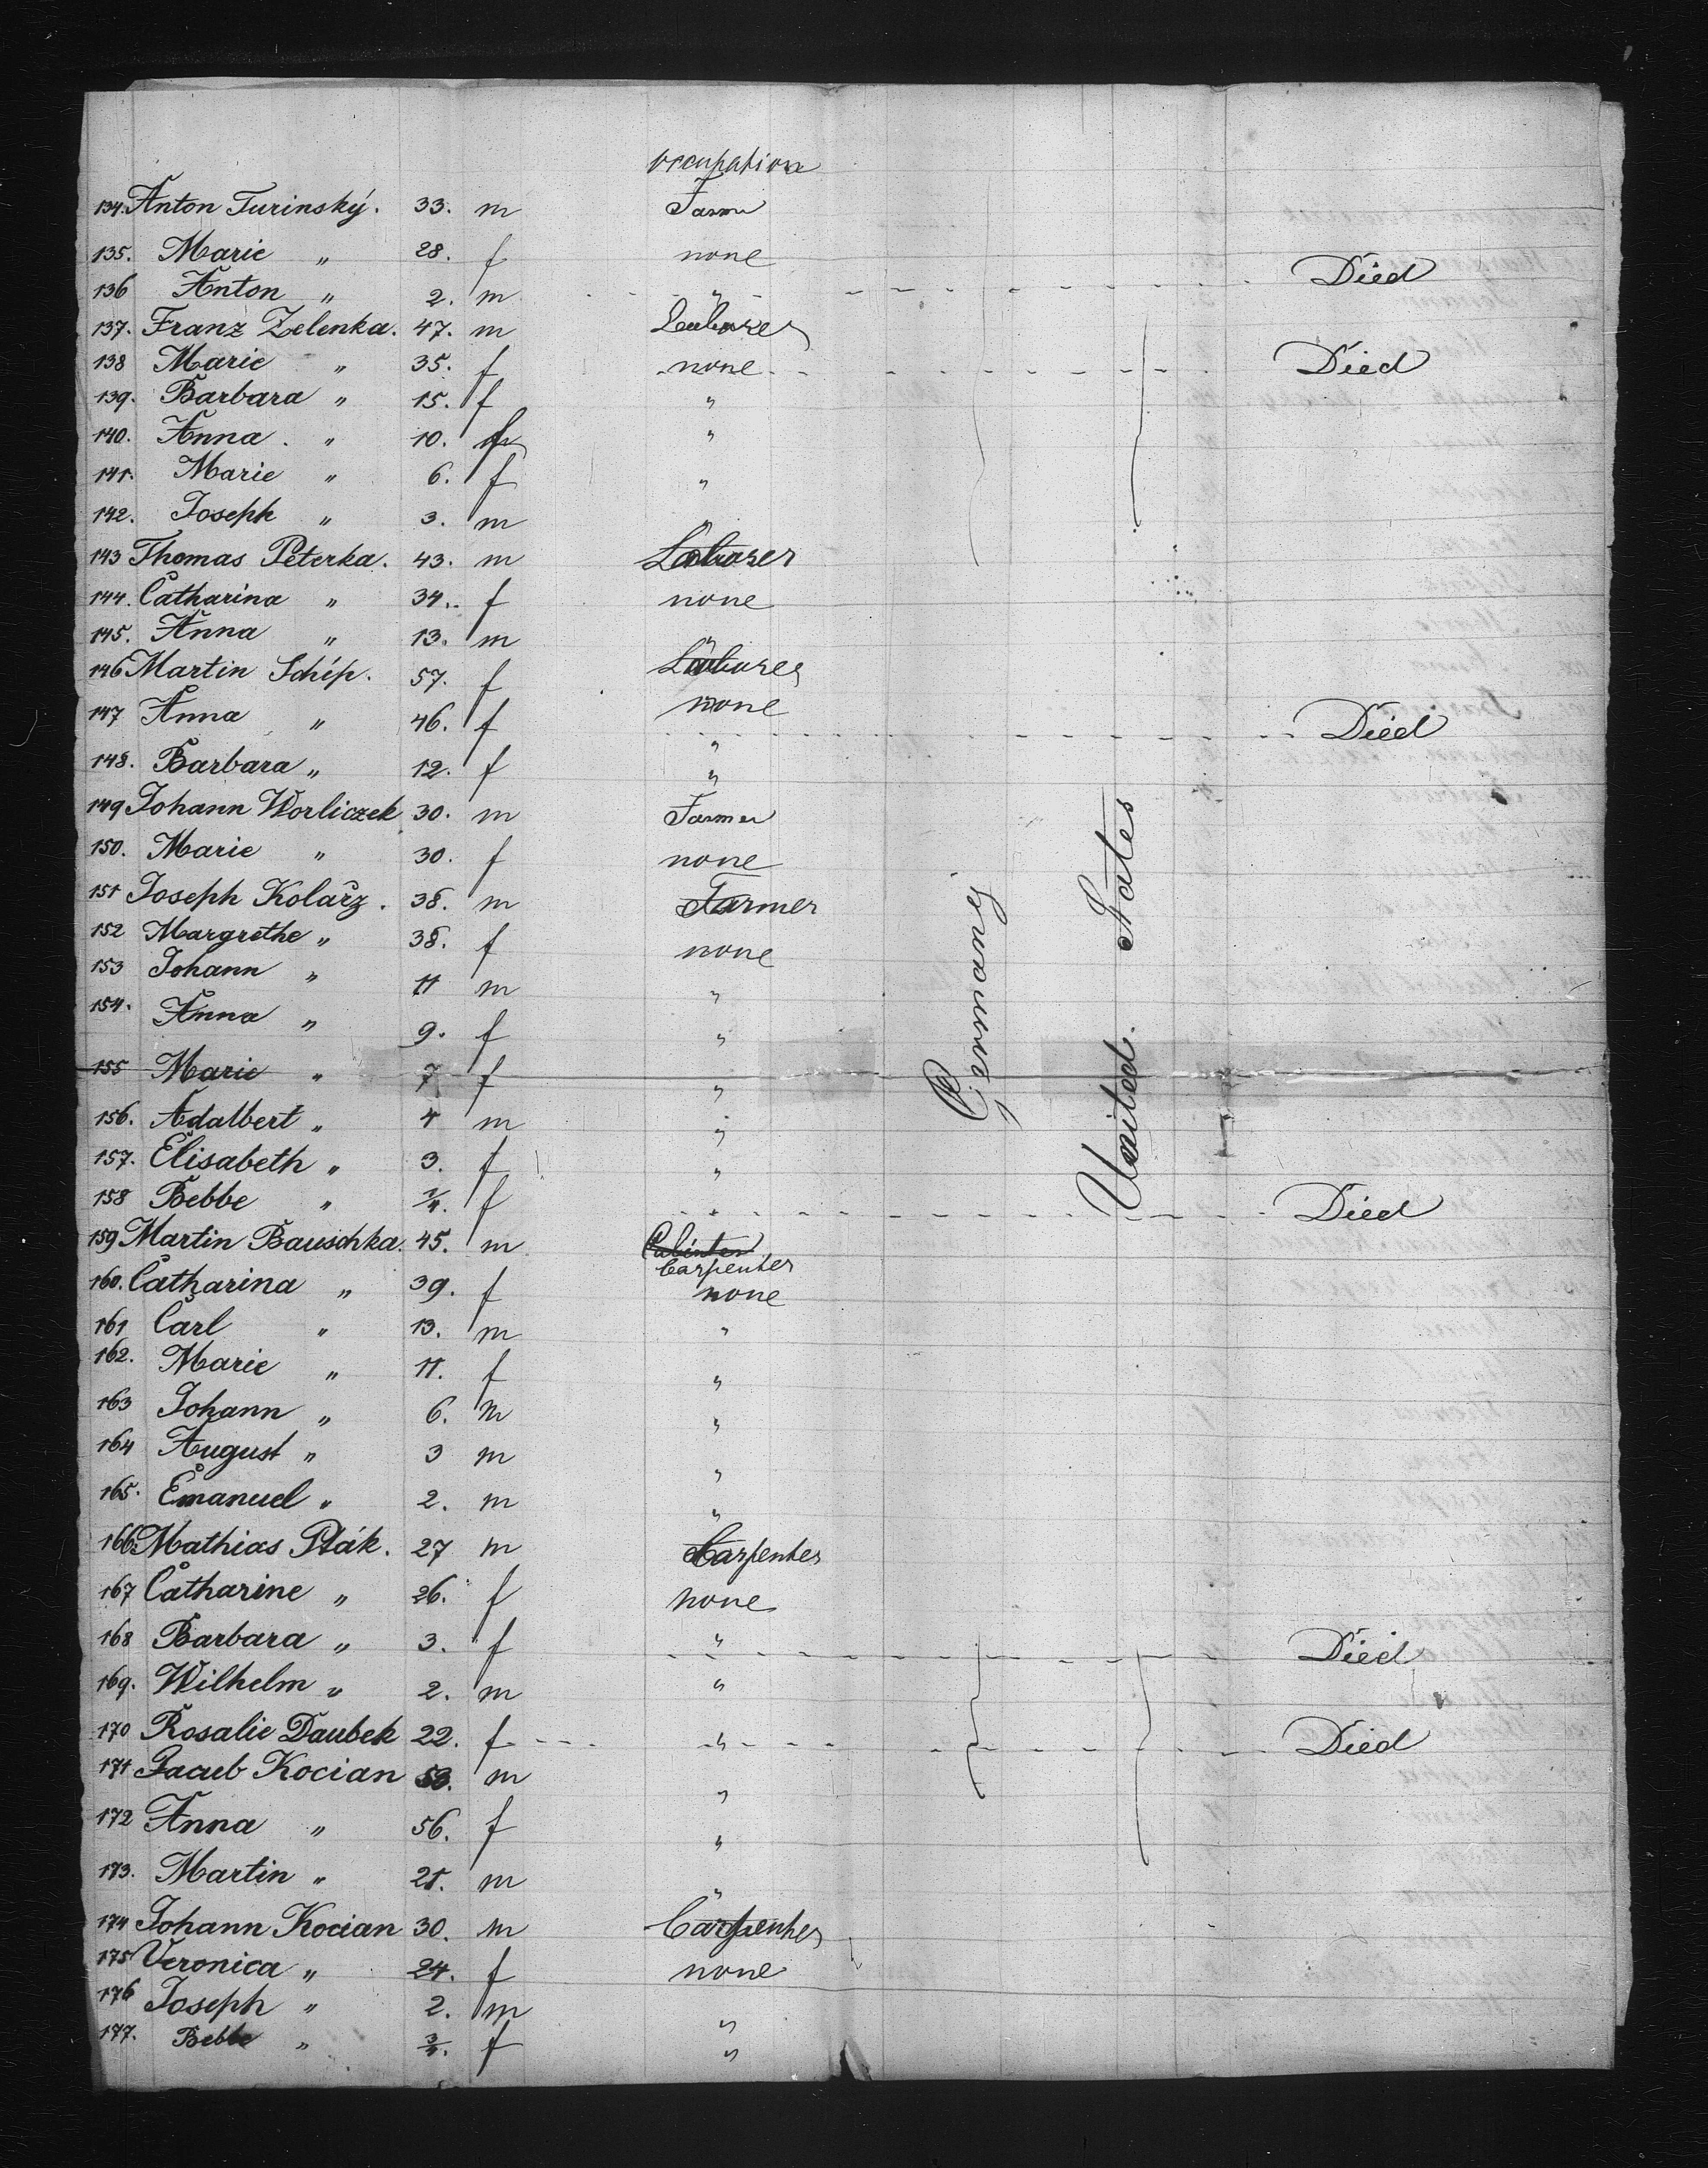 occupation
134. Anton Turinský. 33. m Farm
135. Marie " 28. f none
136 Anton " 2. m " Died
137. Franz Zelenka. 47. m Laborer
138 Marie " 35. f none Died
139. Barbara " 15. f "
140. Anna. " 10. f "
141. Marie " 6. f "
142. Joseph " 3. m "
143 Thomas Peterka. 43. m Laborer
144. Catharina " 34. f none
145. Anna " 13. m "
146 Martin Schíp. 57. f Laborer
147 Anna " 46. f none Died
148. Barbara " 12. f "
149 Johann Worliczek 30. m Farmer
150. Marie " 30. f none
151 Joseph Kolařz. 38. m Farmer
152 Margrethe " 38. f none
153 Johann " 11 m "
154. Anna " 9. f "
155 Marie " 7 f "
156. Adalbert " 4 m "
157. Elisabeth " 3. f "
158 Bebbe " 1/4. f " Died
Germany
United States
159 Martin Bauschka. 45. m Carpenter
160. Catharina " 39. f none
161 Carl " 13. m "
162. Marie " 11. f "
163 Johann " 6. m "
164 August " 3 m "
165. Emanuel " 2. m "
166 Mathias Pták. 27 m Carpenter
167 Catharine " 26. f none
168 Barbara " 3. f " Died
169. Wilhelm " 2. m "
170 Rosalie Daubek 22. f " Died
171 Jacub Kocian m "
172 Anna " 56. f "
173. Martin " 21. m "
174 Johann Kocian 30. m Carpenter
175 Veronica " 24. f none
176 Joseph " 2. m "
177. Bebbe " 3/4. f "